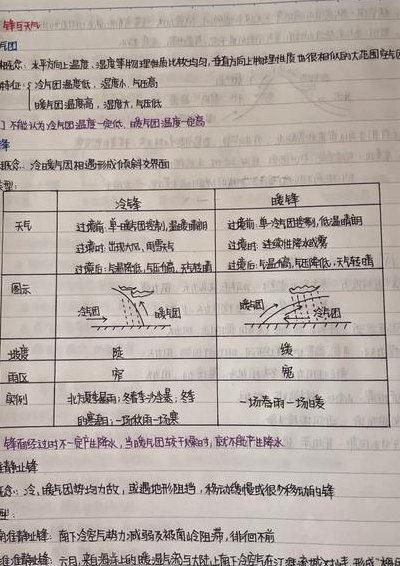 锋与天气
气团
概念：水平方向上温度、湿度等物理性质比较均匀，垂直方向上物理性质也很相似的大范围空气团
特征：冷气团温度低，湿度小，气压高
暖气团温度高，湿度大，气压低
不能认为冷气团温度一定低，暖气团温度一定高
锋
概念：冷暖气团相遇形成倾斜交界面
类型：
冷锋 暖锋
天气 过境前：单一暖气团控制，温暖晴朗 过境前：单一冷气团控制，低温晴朗
过境时：出现大风，雨雪天气 过境时：连续性降水或雾
过境后：气温降低，气压升高，天气转晴 过境后：气温升高，气压降低，天气转晴
图示 冷气团 暖气团 暖气团 冷气团
坡度 陡 缓
雨区 窄 宽
实例 北方夏季暴雨；冬春季沙尘暴；冬季 一场春雨一场暖
的寒潮；一场秋雨一场寒
锋面经过时不一定产生降水，当暖气团较干燥时，就不能产生降水
准静止锋
概念：冷，暖气团势均力敌，或遇地形阻挡，移动缓慢或很少移动的锋
准静止锋：南下冷空气势力减弱及被南岭阻滞，徘徊不前
江淮准静止锋：六月，来自海洋上的暖湿气流与大陆上南下冷空气在江淮流域对峙，形成"梅雨